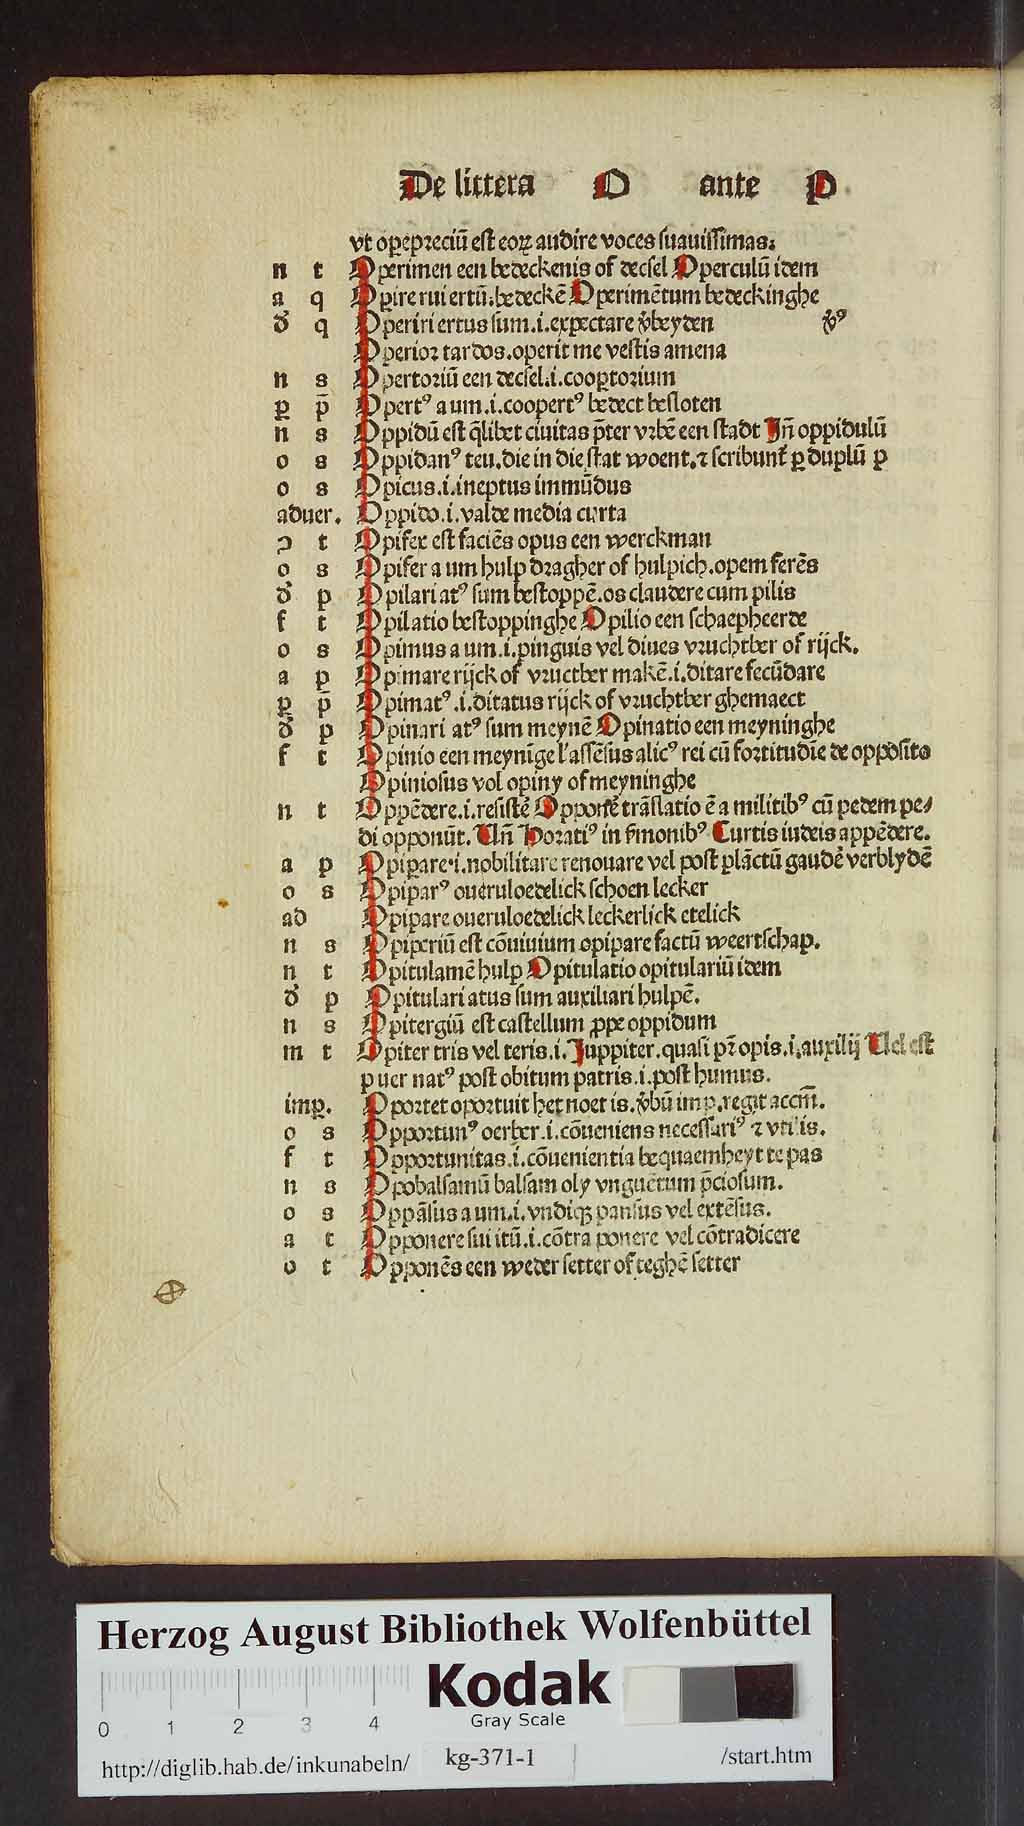 De littera O ante P
vt opepreciū est eoꝝ audire voces suauissimas.
n t Operimen een bedeckenis of decsel Operculū idem
a q Oꝑire rui ertū.bedeckē Operimētum bedeckinghe
đ q Operiri ertus sum.i.expectare v̓beyden v̓ꝰ
Operior tardos.operit me vestis amena
n s Opertoriū een decsel.i.cooꝑtorium
ꝑ p̄ Opertꝰ a um.i.coopertꝰ bedect besloten
n s Oppidū est q̄libet ciuitas p̄ter vrbē een stadt Jn̄ oppidulū
o s Oppidanꝰ teu.die in die stat woent.⁊ scribunt̉ ꝑ duplū p
o s Opicus.i.ineptus immūdus
aduer. Oppido.i.valde media curta
ↄ t Opifex est faciēs opus een werckman
o s Opifer a um hulp dragher of hulpich.opem ferēs
đ p Opilari atꝰ sum bestoppē.os claudere cum pilis
f t Opilatio bestoppinghe Opilio een schaepheerde
o s Opimus a um.i.pinguis vel diues vruchtber of rijck.
a p Opimare rijck of vructber makē.i.ditare fecūdare
ꝑ p̄ Opimatꝰ.i.ditatus rijck of vruchtber ghemaect
đ p Opinari atꝰ sum meynē Opinatio een meyninghe
f t Opinio een meynīge l̓ assēsus alicꝰ rei cū fortitudīe de opposito
Opiniosus vol opiny of meyninghe
n t Oppēdere.i.resistē Oppone̅ trāslatio ē a militibꝰ cū pedem pe⸗
di opponūt. Un̄ Horatiꝰ in s̄monibꝰ Curtis iudeis appēdere.
a p Opiꝑare.i.nobilitare renouare vel post plāctū gaudē verblydē
o s Opiparꝰ oueruloedelick schoen lecker
ad Opipare oueruloedelick leckerlick etelick
n s Opiperiū est cōuiuium opipare factū weertschap.
n t Opitulamē hulp Opitulatio opitulariū idem
đ p Opitulari atus sum auxiliari hulpē.
n s Opitergiū est castellum ꝓpe oppidum
m t Opiter tris vel teris.i.Juppiter.quasi pr̄ opis.i.auxilij Uel est
puer natꝰ post obitum patris.i.post humus.
imp. Oportet oportuit het noet is.v̓bū imp.regit accm̄.
o s Opportunꝰ oerber.i.cōueniens necessariꝰ ⁊ vtilis.
f t Opportunitas.i.cōuenientia bequaemheyt te pas
n s Opobalsamū balsam oly vnguētum p̄ciosum.
o s Oppāsus a um.i.vndiqꝫ pansus vel extēsus.
a t Opponere sui itū.i.cōtra ponere vel cōtradicere
o t Opponēs een weder setter of teghē setter
Herzog August Bibliothek Wolfenbüttel
Kodak
Gray Scale
0 1 2 3 4
http://diglib.hab.de/inkunabeln/ kg-371-1 /start.htm